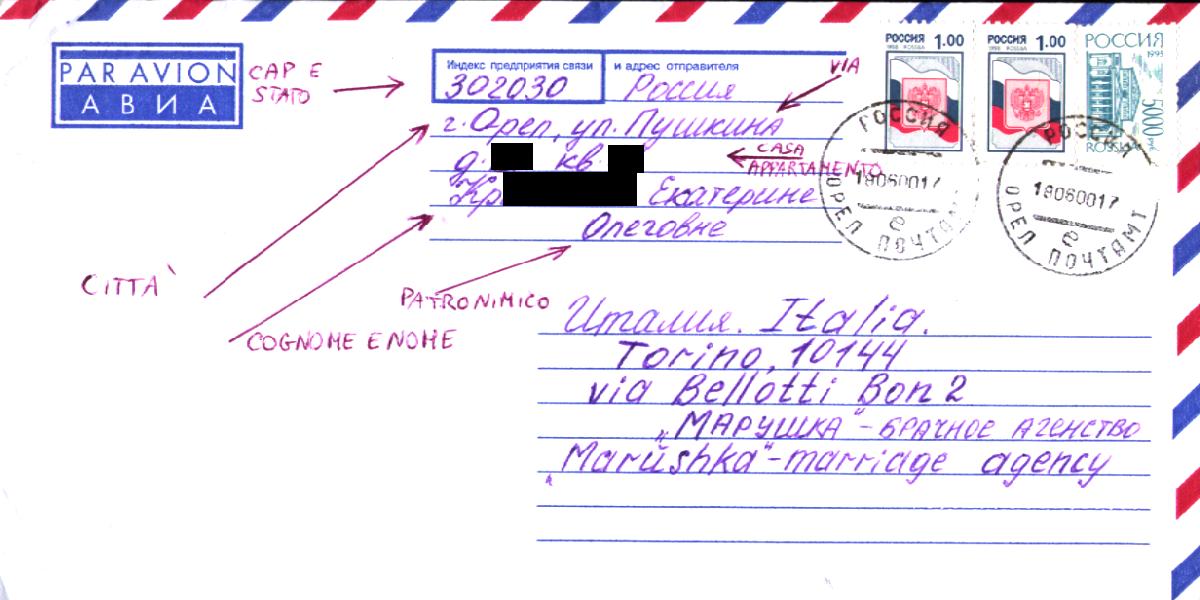 PAR AVION
АВИА
CAP E
STATO
Индекс предприятия связи
и адрес отправителя
302030 Россия
г. Орел, ул. Пушкина
д. кв.
Кр Екатерине
Олеговне
VIA
CASA
APPARTAMENTO
CITTÀ
COGNOME E NOME
PATRONIMICO
РОССИЯ 1.00
1998 ROSSIA
РОССИЯ 1.00
1998 ROSSIA
РОССИЯ
1995
5000 руб
ROSSIA
РОССИЯ
18060017
е
ОРЕЛ ПОЧТАМТ
РОССИЯ
18060017
е
ОРЕЛ ПОЧТАМТ
Италия. Italia.
Torino, 10144
via Bellotti Bon 2
„МАРУШКА“ - БРАЧНОЕ АГЕНСТВО
„Marushka“ - marriage agency